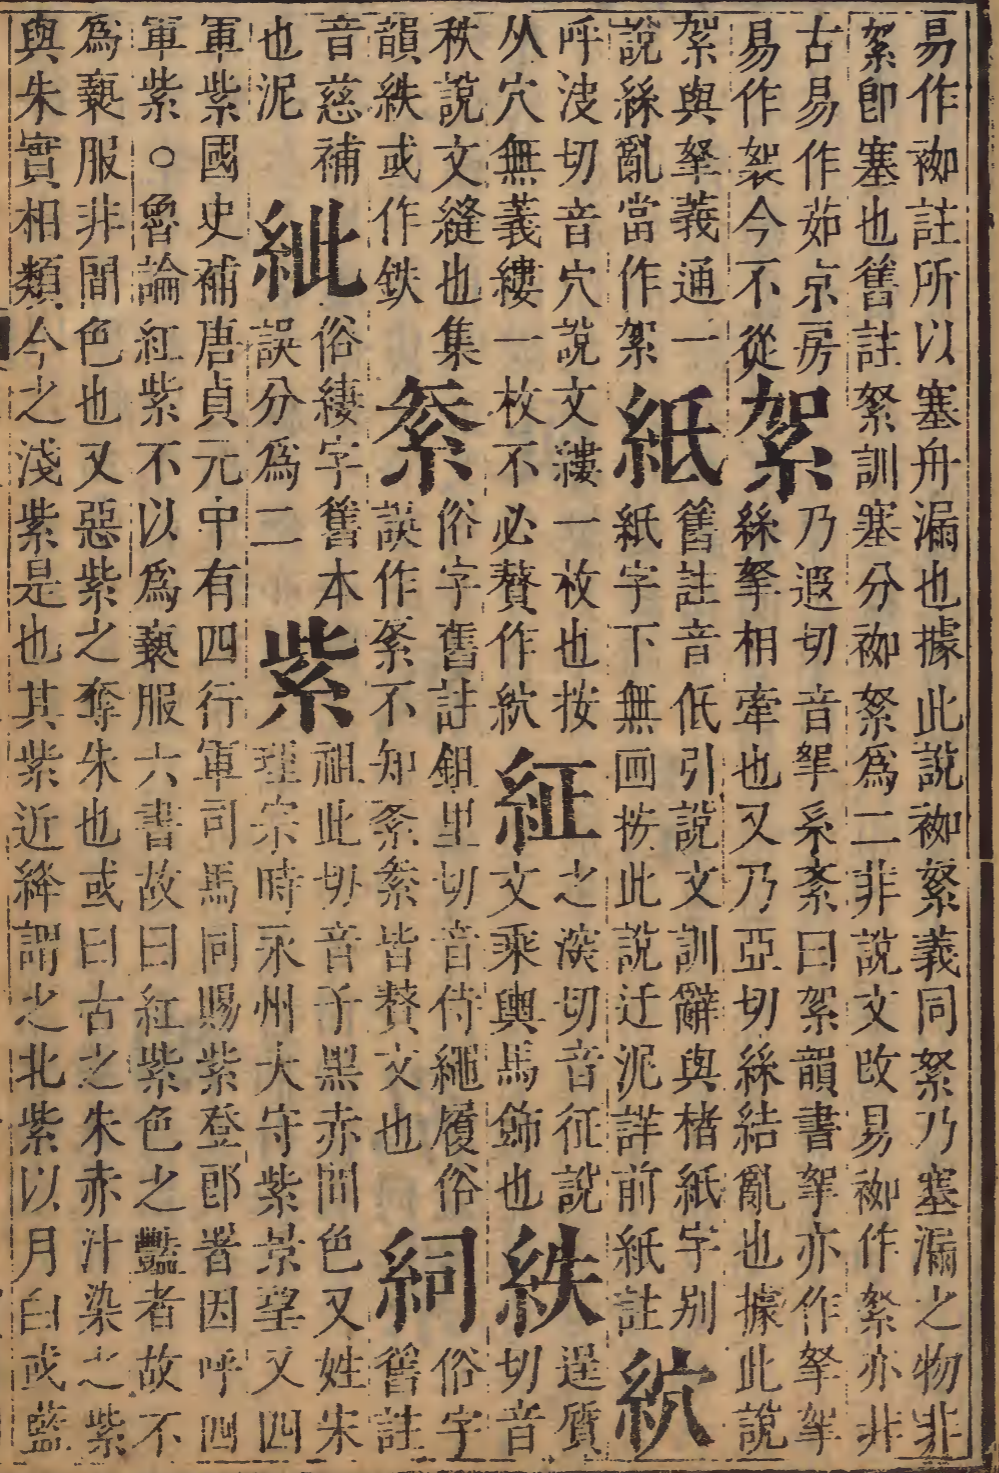 易作袽註所以塞舟漏也據此說袽絮義同絮乃塞漏之物非
絮卽塞也舊註絮訓塞分袽絮爲二非說文攺易袽作絮亦非
古易作茹京房
易作袈今不從
絮
乃遐切音拏系紊曰絮韻書拏亦作拏挐
絲拏相牽也又乃亞切絲結亂也據此說
絮與拏義通一
說絲亂當作絮
紙
舊註音低引說文訓辭與楮紙字別
紙字下無回按此說迂泥詳前紙註
䋉
呼決切音穴說文縷一枚也按
从穴無義縷一枚不必贅作䋉
䋊
之深切音征說
文乘輿馬飾也
紩
逞質切音
秩說文縫也集
韻紩或作鉄
俗字舊註鉏里切音侍繩履俗
誤作不知絫皆贅文也
俗字
舊註
音慈補
也泥
紪
俗縷字舊本
誤分爲二
紫
祖此切音子黑赤間色又姓宋
理宗時永州大守紫景星又四
軍紫國史補唐貞元中有四行軍司馬同賜紫登郎署因呼四
軍紫○魯論紅紫不以爲褻服六書故曰紅紫色之豔者故不
爲褻服非間色也又惡紫之奪朱也或曰古之朱赤汁染之紫
與朱實相類今之淺紫是也其紫近絳謂之北紫以月白或藍